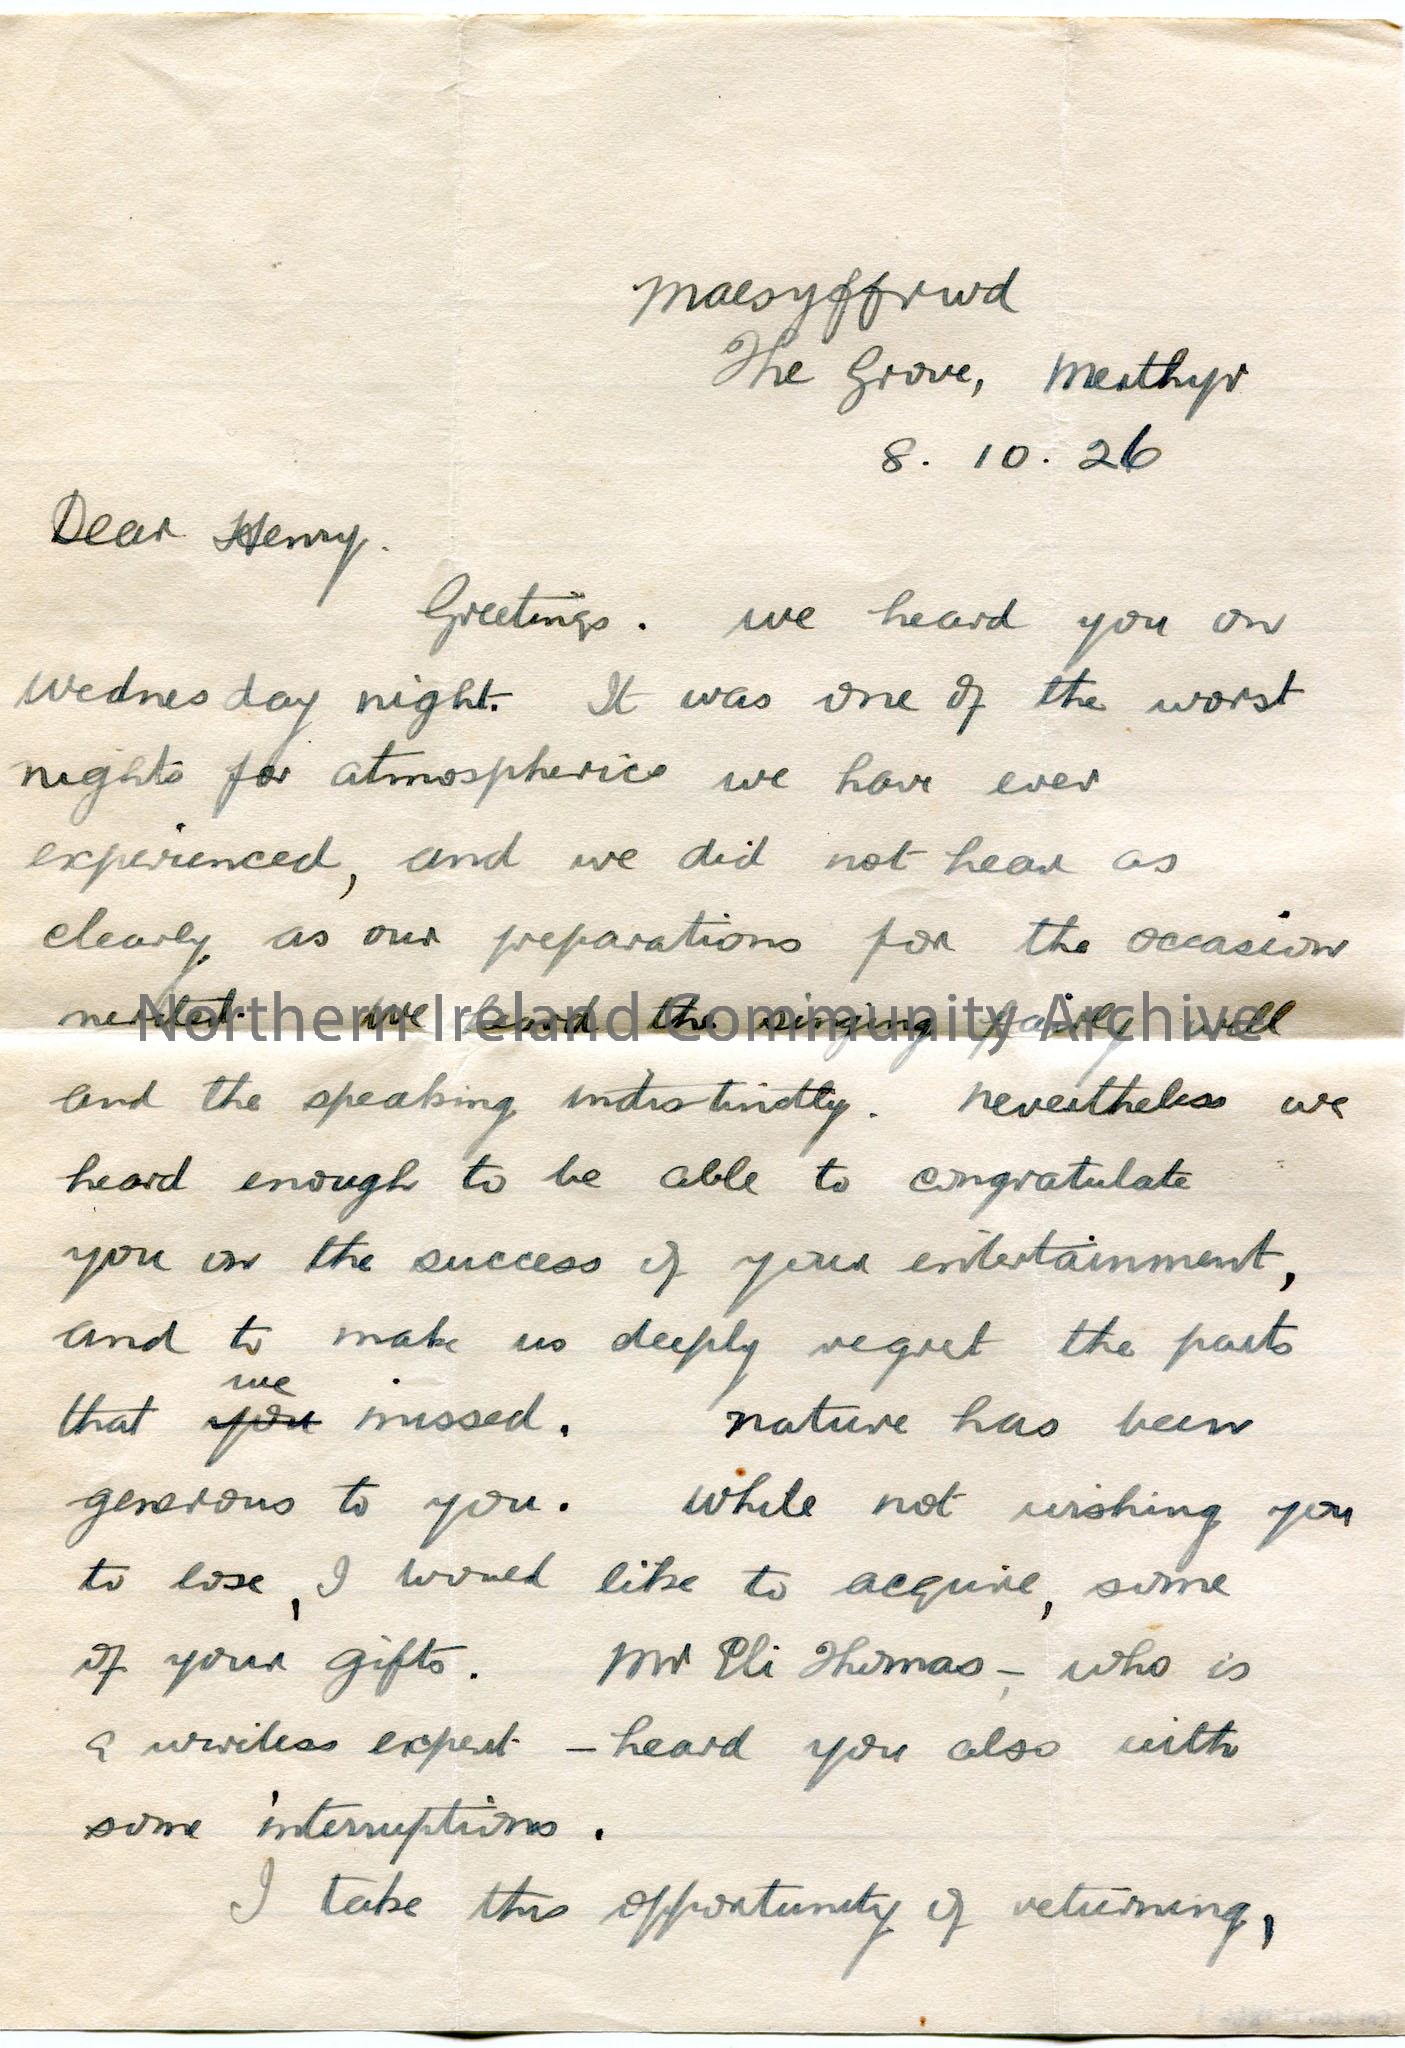 Maesyffrwd
The Grove, Merthyr
8. 10. 26
Dear Henry.
Greetings. We heard you on
Wednesday night. It was one of the worst
nights for atmospherics we have ever
experienced, and we did not hear as
clearly as our preparations for the occasion
merited. We heard the singing fairly well
Northern Ireland Community Archive
and the speaking indistinctly. Nevertheless we
heard enough to be able to congratulate
you on the success of your entertainment,
and to make us deeply regret the parts
we
that you missed. Nature has been
generous to you. While not wishing you
to lose, I would like to acquire, some
of your gifts. Mr Eli Thomas – who is
a wireless expert – heard you also with
some interruptions.
I take this opportunity of returning,